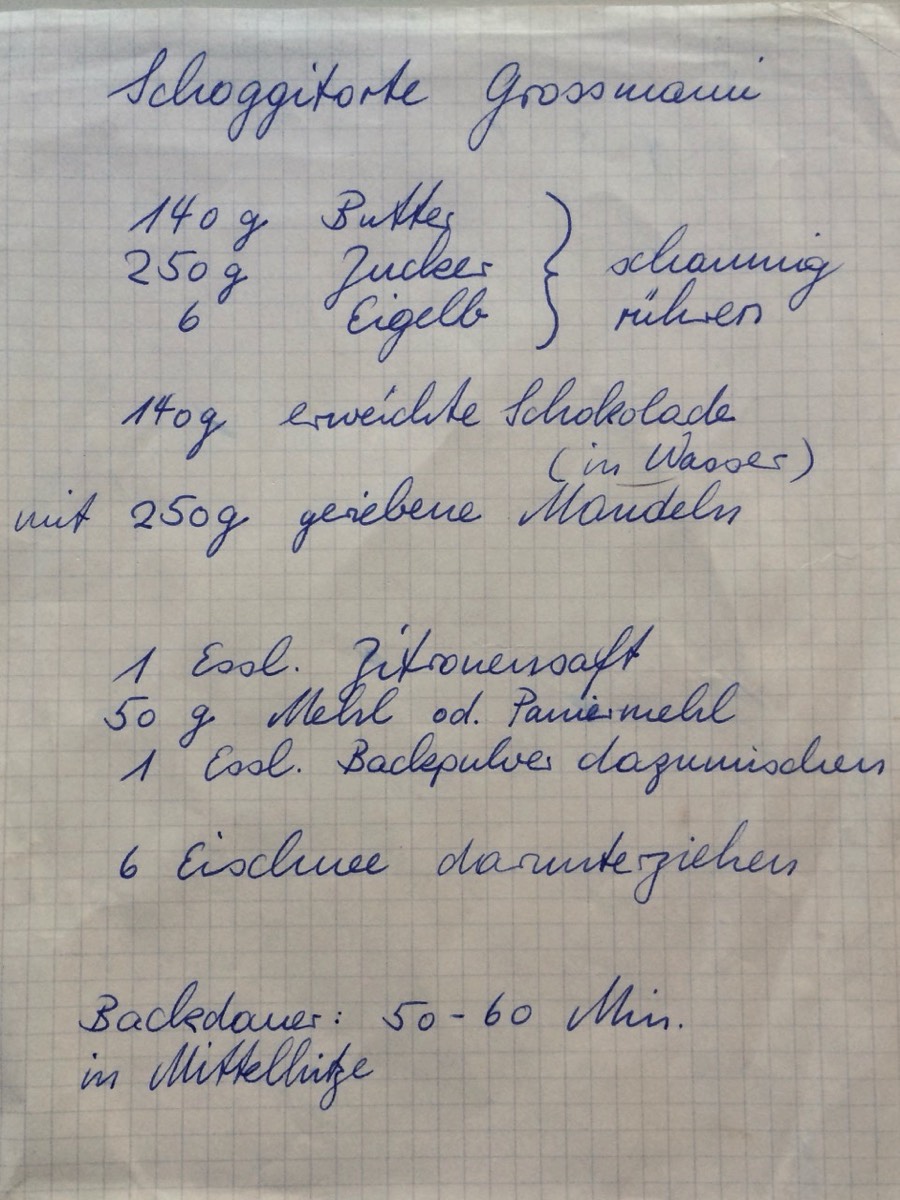 Schoggitorte Grossmami
140 g Butter
250 g Zucker } schaumig
6 Eigelb rühren
140g erweichte Schokolade
(in Wasser)
mit 250g geriebene Mandeln
1 Essl. Zitronensaft
50 g Mehl od. Paniermehl
1 Essl. Backpulver dazumischen
6 Eischnee darunterziehen
Backdauer: 50-60 Min.
in Mittelhitze